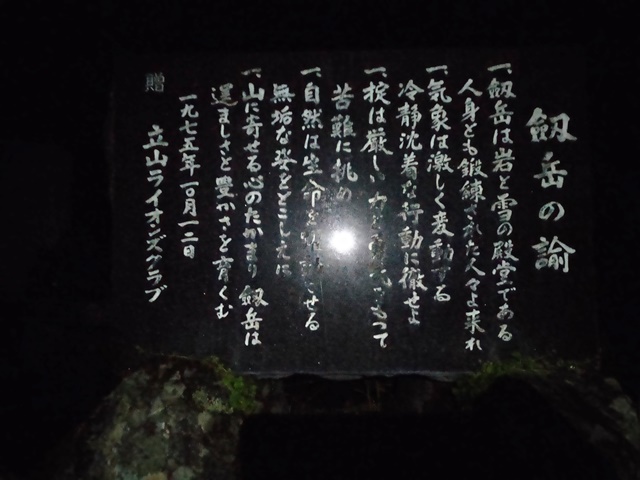 劔岳の諭
一、劔岳は岩と雪の殿堂である
人身とも鍛錬された人々よ来れ
一、気象は激しく変動する
冷静沈着な行動に徹せよ
一、掟は厳しい 力と勇気をもって
苦難に挑め
一、自然は生命を させる
無垢な姿をとこしえに
一、山に寄せる心のたかまり 劔岳は
逞ましさと豊かさを育くむ
一九七五年一〇月一二日
贈 立山ライオンズクラブ